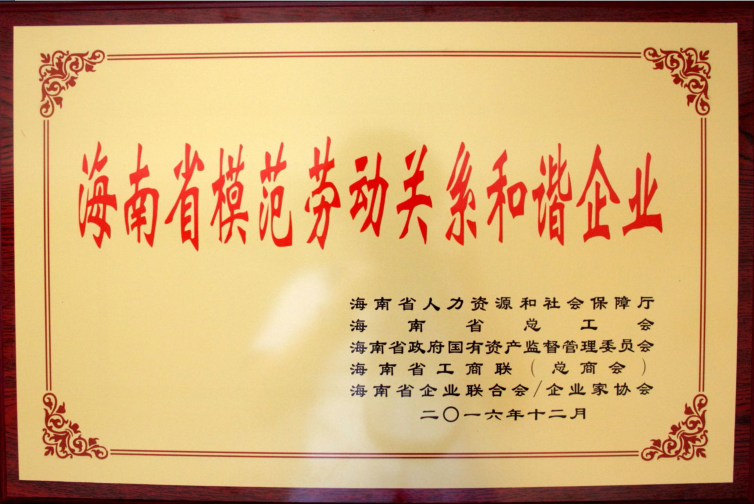 海南省模范劳动关系和谐企业
海南省人力资源和社会保障厅
海南省总工会
海南省政府国有资产监督管理委员会
海南省工商联(总商会)
海南省企业联合会/企业家协会
二〇一六年十二月